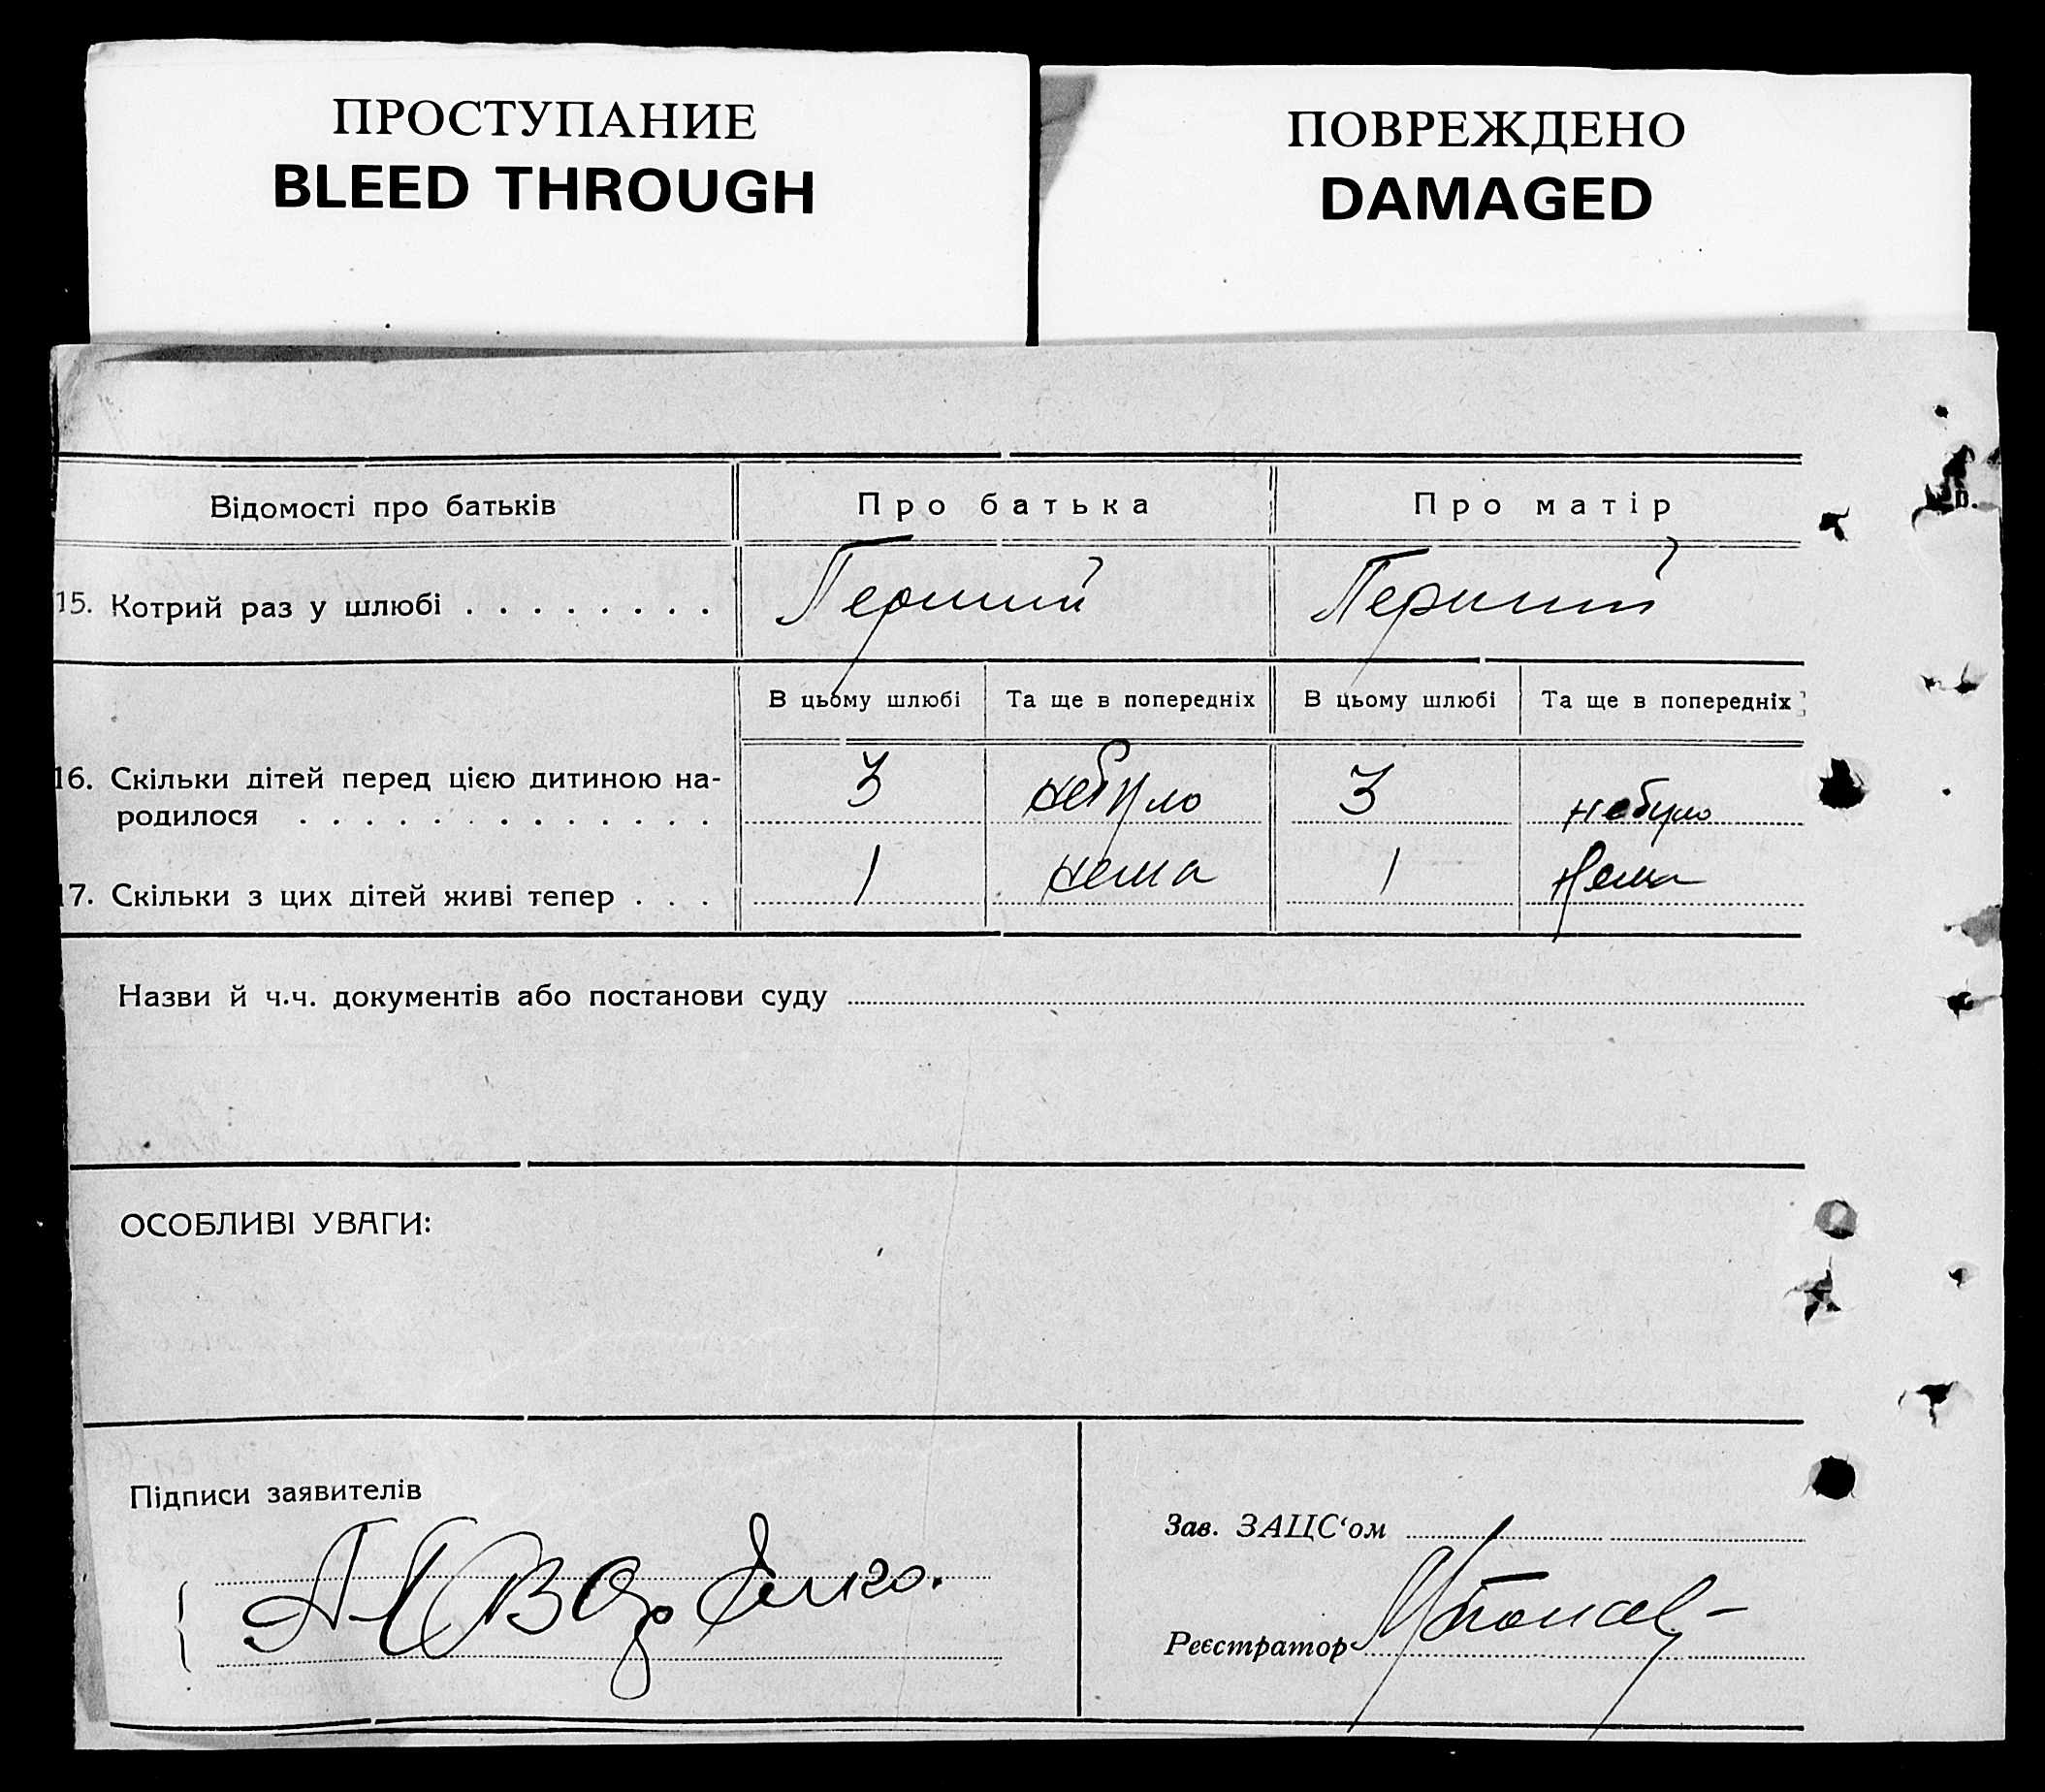 ПРОСТУПАНИЕ
BLEED THROUGH
ПОВРЕЖДЕНО
DAMAGED
Відомості про батьків
Про батька
Про матір
15. Котрий раз у шлюбі . . . . . . . .
Перший
Перший
В цьому шлюбі
Та ще в попередніх
В цьому шлюбі
Та ще в попередніх
16. Скільки дітей перед цією дитиною на-
родилося . . . . . . . . . . . . .
3
небуло
3
небуло
17. Скільки з цих дітей живі тепер . . .
1
нема
1
Нема
Назви й ч.ч. документів або постанови суду
ОСОБЛИВІ УВАГИ:
Підписи заявителів
Зав. ЗАЦС‘ом
Реєстратор